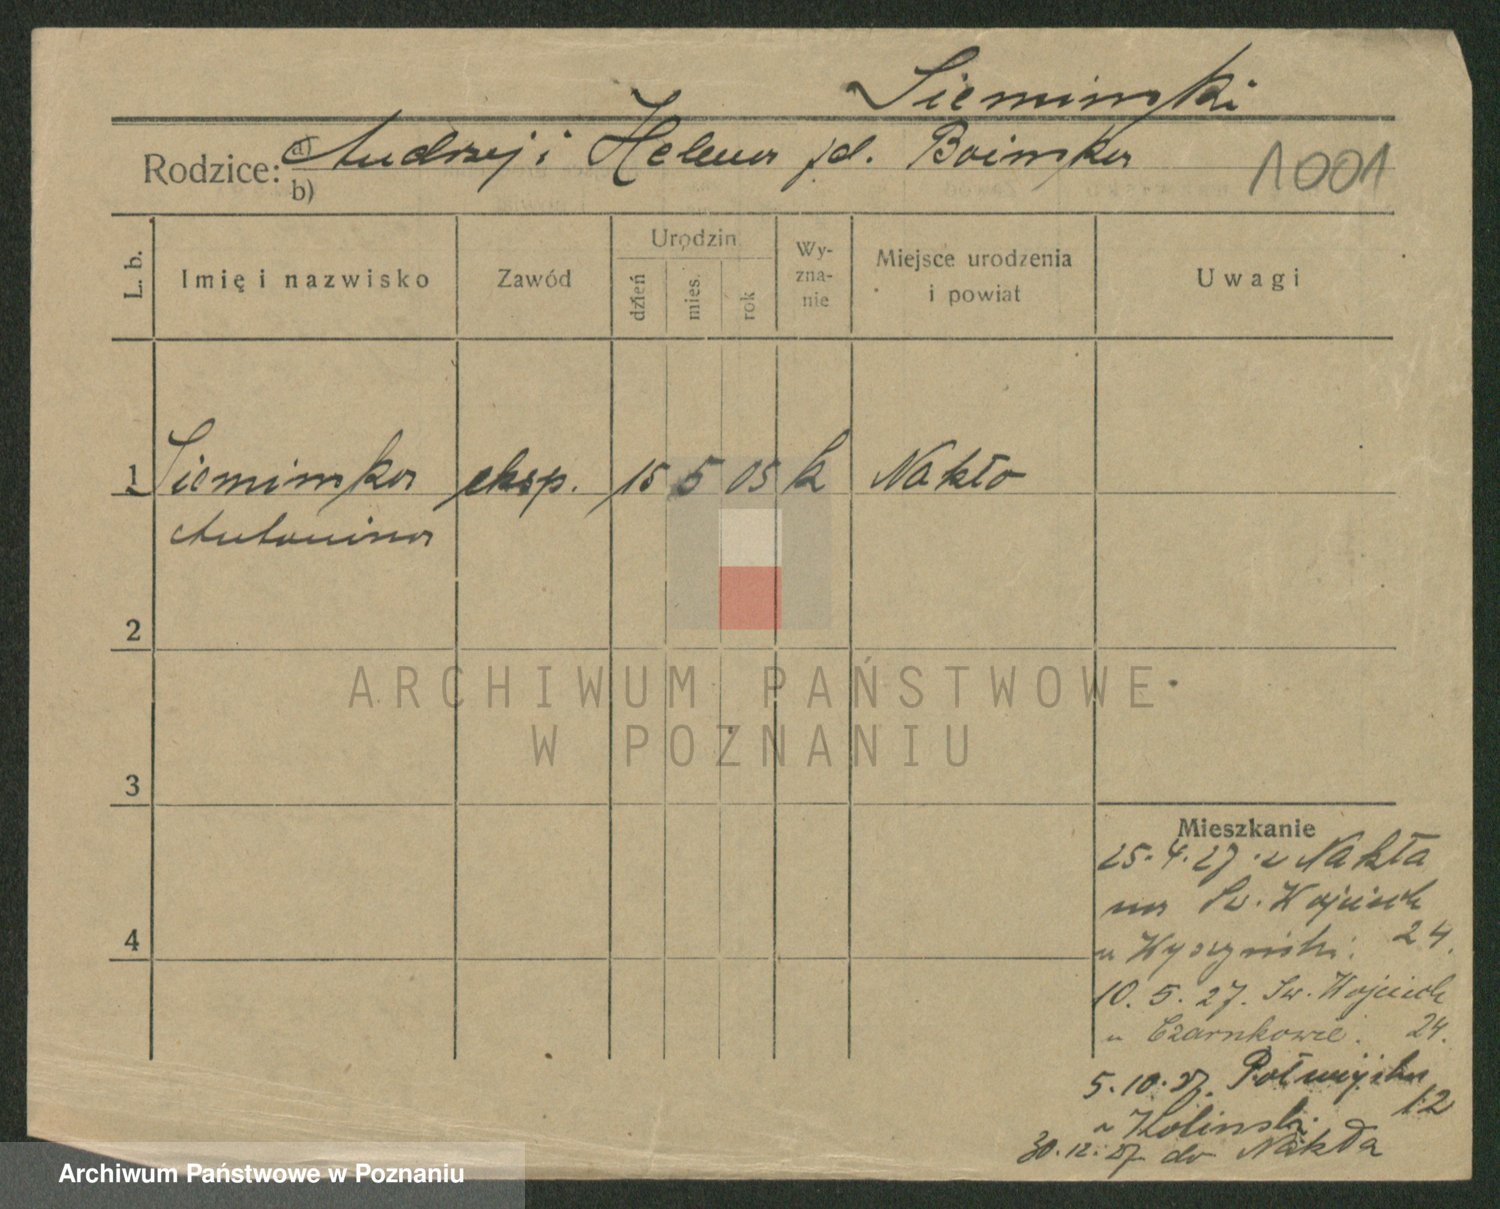 Siemiński
Rodzice: a) Andrzej i Helena
b)
1001
L. b.
Imię i nazwisko
Zawód
Urodzin
dzień
mies.
rok
Wy-
zna-
nie
Miejsce urodzenia
i powiat
Uwagi
1 Siemińska eksp. 15 5 05 k Nakło
Antonina
2
3
4
Mieszkanie
25.4.27. z Nakła
na Św. Wojciech
u Wyszyński. 24.
10.5.27. Św. Wojciech
u Czarnkowie. 24.
5.10.27. Półwiejska
u Kolinski. 12
30.12.27. do Nakła
ARCHIWUM PAŃSTWOWE
W POZNANIU
Archiwum Państwowe w Poznaniu